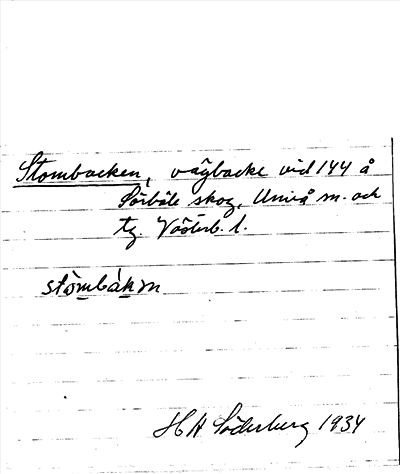 Stombacken, vägbacke vid 144 å
Sörböle skog, Umeå sn. och
tg. Västerb. l.
stòmbákɳ
HH Söderberg 1934